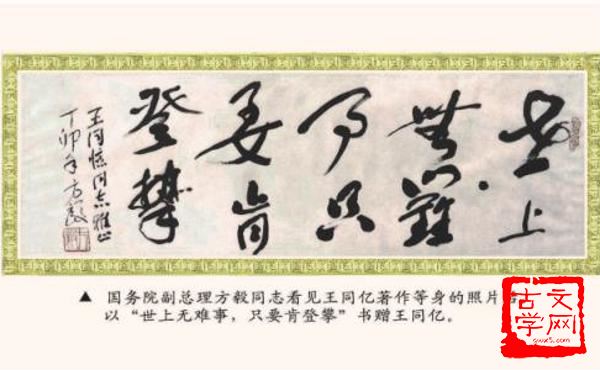 世上
無難
事只
要肯
登攀
王同億同志雅正
丁卯年方毅
▲ 国务院副总理方毅同志看见王同亿著作等身的照片后
以“世上无难事，只要肯登攀”书赠王同亿。
古文
学网